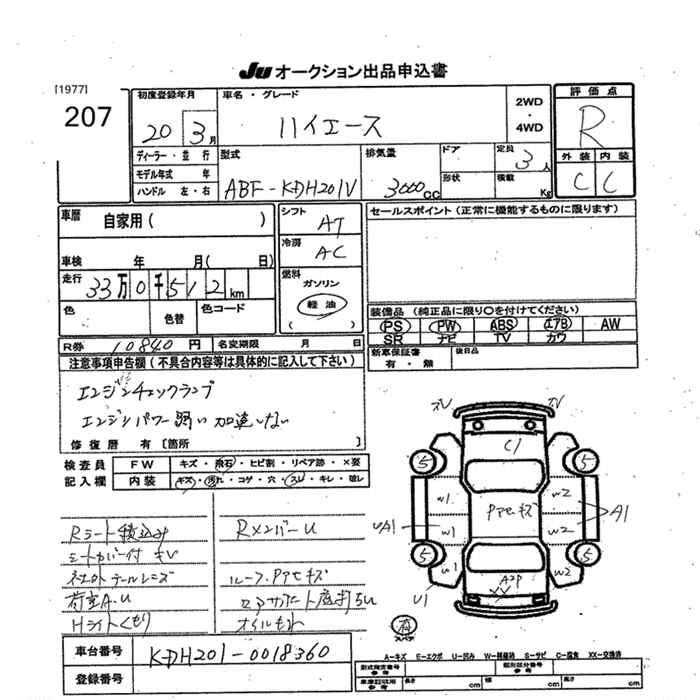 JU オークション出品申込書
[1977]
207
初度登録年月
20 3月
車名・グレード
ハイエース
2WD
・
4WD
評価点
R
外装 内装
C C
ディーラー・並行
モデル年式 年
ハンドル 左・右
型式
ABF-KDH201V
排気量
3000cc
ドア
形状
定員
3人
積載
Kg
車歴
自家用( )
シフト
AT
セールスポイント(正常に機能するものに限ります)
冷房
AC
車検 年 月( 日)
走行
33万0千512km
燃料
ガソリン
軽油
( )
色
色替
色コード
装備品(純正品に限り○を付けてください)
PS PW ABS エアB AW
SR ナビ TV カワ
R券 10840円
名変期限 月 日
新車保証書
有・無
後日品
注意事項申告欄(不具合内容等は具体的に記入して下さい)
エンジンチェックランプ
エンジンパワー弱い 加速しない
修復歴 有[箇所 ]
検査員
記入欄
FW キズ・飛石・ヒビ割・リペア跡・×要
内装 キズ・汚れ・コゲ・穴・スレ・キレ・破レ
Rシート積込み
シートカバー付 キレ
社外テールレンズ
荷室A.U
Hライトくもり
RメンバーU
ルーフ.Pアセキズ
オイルもれ
C1
5 5
W1 W2
Pアセキズ
UA1 W1 W2 A1
5 5
W1 W2
U1 A2P
XX
有
スペア
A-キズ E-エクボ U-凹み W-補修跡 S-サビ C-腐食 XX-交換済
車台番号
KDH201-0018360
登録番号
型式指定番号
参考
類別区分番号
参考
車庫証明用
参考
長さ cm 幅 cm 高さ cm